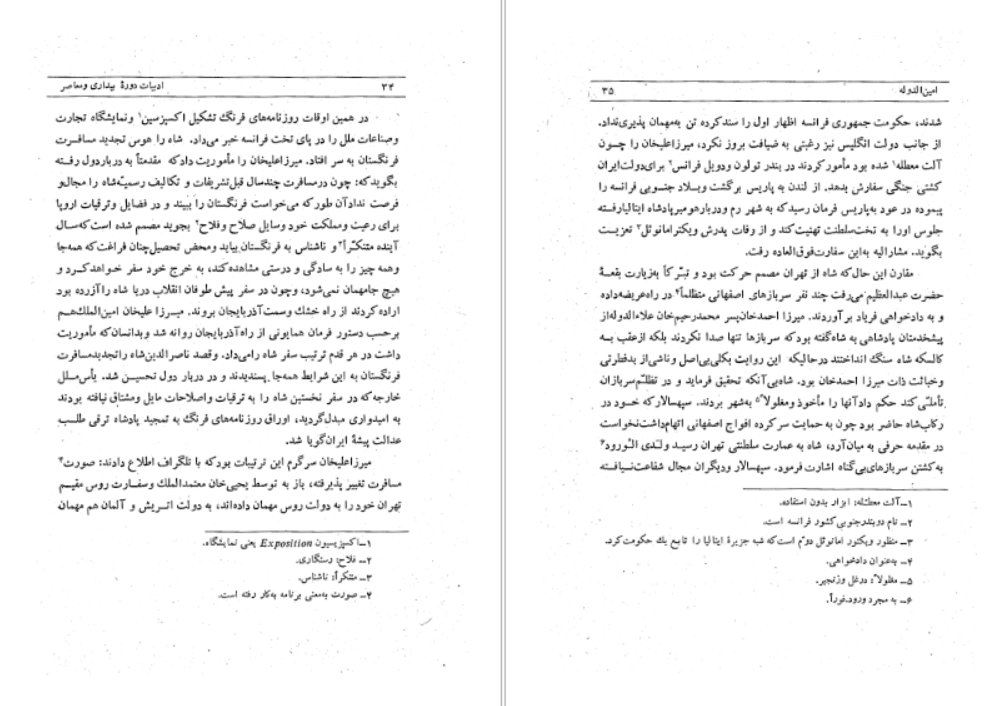 ۳۴
ادبیات دورهٔ بیداری ومعاصر
در همین اوقات روزنامه‌های فرنگ تشکیل اکسپزسین۱ ونمایشگاه تجارت
وصناعات ملل را در پای تخت فرانسه خبر می‌داد. شاه را هوس تجدید مسافرت
فرنگستان به سر افتاد. میرزاعلیخان را مأموریت دادکه مقدمتاً به درباردول رفته
بگویدکه: چون درمسافرت چندسال قبل‌تشریفات و تکالیف رسمیّه‌شاه را مجال‌و
فرصت ندادآن طورکه می‌خواست فرنگستان را ببیند و در فضایل وترقیات اروپا
برای رعیت ومملکت خود وسایل صلاح وفلاح۲ بجوید مصمم شده است که‌سال
آینده متنکّراً۳ و ناشناس به فرنگستان بیاید ومحض تحصیل‌چنان فراغت‌که همه‌جا
وهمه چیز را به سادگی و درستی مشاهده‌کند، به خرج خود سفر خواهدکرد و
هیچ جامهمان نمی‌شود، وچون در سفر پیش طوفان انقلاب دریا شاه راآزرده بود
اراده کردند از راه خشك وسمت‌آذربایجان بروند. میرزا علیخان امین‌الملك‌هم
برحسب دستور فرمان همایونی از راه‌آذربایجان روانه شد وبدانسان‌که مأموریت
داشت در هر قدم ترتیب سفر شاه رامی‌داد. وقصد ناصرالدین‌شاه راتجدیدمسافرت
فرنگستان به این شرایط همه‌جا پسندیدند و در دربار دول تحسین شد. یأس‌ملل
خارجه‌که در سفر نخستین شاه را به ترقیات واصلاحات مایل ومشتاق نیافته بودند
به امیدواری مبدل‌گردید، اوراق روزنامه‌های فرنگ به تمجید پادشاه ترقی طلب
عدالت پیشهٔ ایران‌گویا شد.
میرزاعلیخان سرگرم این ترتیبات بودکه با تلگراف اطلاع دادند: صورت۴
مسافرت تغییر پذیرفته، باز به توسط یحیی‌خان معتمدالملك وسفارت روس مقیم
تهران خود را به دولت روس مهمان داده‌اند، به دولت اتریش و آلمان هم مهمان
۱ــ اکسپزیسیون Exposition یعنی نمایشگاه.
۲ــ فلاح: رستگاری.
۳ــ متنکّراً: ناشناس.
۴ــ صورت به‌معنی برنامه به‌کار رفته است.
امین‌الدوله
۳۵
شدند، حکومت جمهوری فرانسه اظهار اول را سندکرده تن به‌مهمان پذیری‌نداد.
از جانب دولت انگلیس نیز رغبتی به ضیافت بروز نکرد، میرزاعلیخان را چون
آلت معطله۱ شده بود مأمور کردند در بندر تولون ودوبل فرانس۲ برای‌دولت‌ایران
کشتی جنگی سفارش بدهد. از لندن به پاریس برگشت وبلاد جنوبی فرانسه را
پیموده در عود به‌پاریس فرمان رسیدکه به شهر رم ودربارهومبرپادشاه ایتالیارفته
جلوس اورا به تخت‌سلطنت تهنیت‌کند و از وفات پدرش ویکترامانوئل۳ تعزیت
بگوید. مشارالیه به‌این سفارت‌فوق‌العاده رفت.
مقارن این حال‌که شاه از تهران مصمم حرکت بود و تبرّکاً به‌زیارت بقعهٔ
حضرت عبدالعظیم‌می‌رفت چند نفر سربازهای اصفهانی متظلماً۴ در راه‌عریضه‌داده
و به دادخواهی فریاد بر آوردند. میرزا احمدخان‌پسر محمدرحیم‌خان علاءالدوله‌از
پیشخدمتان پادشاهی به شاه‌گفته بودکه سربازها تنها صدا نکردند بلکه ازعقب به
کالسکه شاه سنگ انداختند درحالیکه این روایت بکلی‌بی‌اصل وناشی‌از بدفطرتی
وخباثت ذات میرزا احمدخان بود. شاه‌بی‌آنکه تحقیق فرماید و در تظلّم‌سربازان
تأملی‌کند حکم دادآنها را مأخوذ ومغلولاً۵ به‌شهر بردند. سپهسالارکه خود در
رکاب‌شاه حاضر بود چون به حمایت سرکرده افواج اصفهانی اتهام‌داشت‌نخواست
در مقدمه حرفی به میان‌آرد، شاه به عمارت سلطنتی تهران رسید ولدی الورود۶
به‌کشتن سربازهای‌بی‌گناه اشارت فرمود. سپهسالار ودیگران مجال شفاعت‌نیافته
۱ــ آلت معطله: ابزار بدون استفاده.
۲ــ نام دوبندرجنوبی‌کشور فرانسه است.
۳ــ منظور ویکتور امانوئل دوّم است‌که شبه جزیرهٔ ایتالیا را تابع یك حکومت‌کرد.
۴ــ به‌عنوان دادخواهی.
۵ــ مغلولاً: درغل وزنجیر.
۶ــ به مجرد ورود.فوراً.